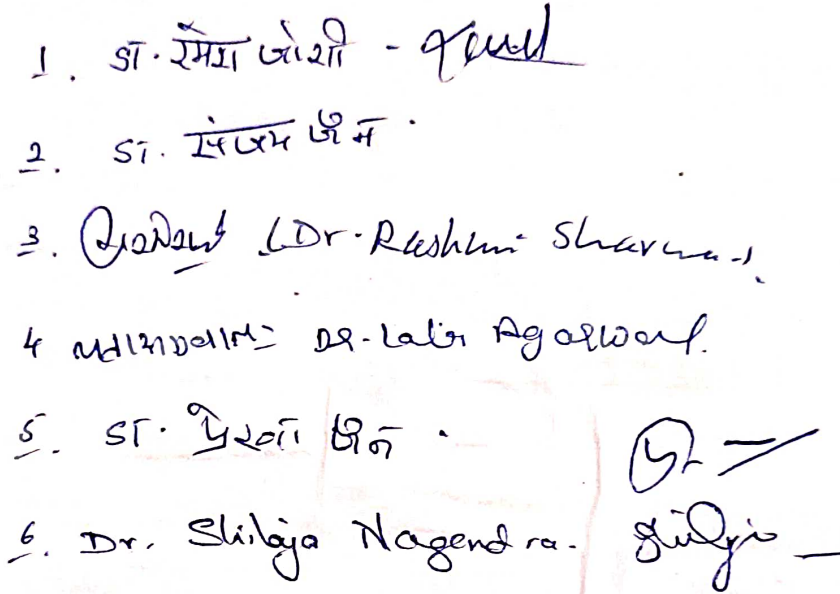 1. डॉ. रमेश जोशी -
2. डॉ. संजय जैन
3. (Dr. Rashmi Sharma).
4 Dr. Lalit Agarwal.
5. डॉ. प्रेरणा जैन
6. Dr. Shilaja Nagendra.